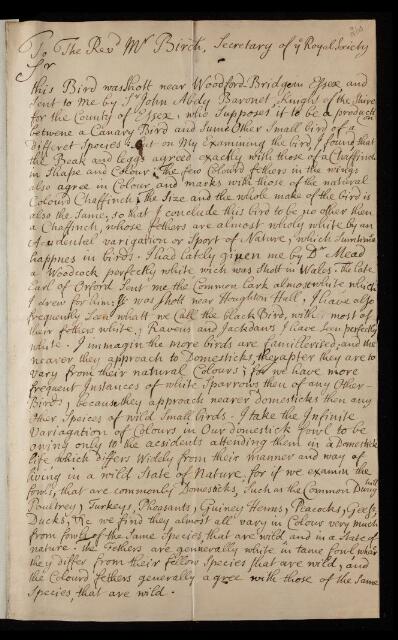 To The Revd Mr Birch, Secretary of ye Royal Society
Sir
this Bird was shott near Woodford Bridge in Essex and
sent to me by Sr John Abdy Baronet, knight of the Shire
for the County of Essex, who Supposes it to be a production
betwene a Canary Bird and Sume Other Small bird of a
Differet Species but on My Examining the bird I found that
the Beak and leggs agreed exactly with those of a Chaffinch
in Shape and Colour. the few Colourd fethers in the wings
also agree in Colour and marks with those of the natural
Colourd Chaffinch; the Size and the whole make of the bird is
also the Same, so that I conclude this bird to be no other then
a Chaffinch, whose fethers are almost wholy white by an
Accidental varigation or Sport of Nature, which Sumtimes
happnes in birds. I had lately given me by Dr Mead
a Woodcock perfectly white wich was shott in Wales. the late
Earl of Orford Sent me the Common lark almost white which
I drew for him; it was shott near Houghton Hall, I have also
frequently Seen whatt we Call the black Bird, with most of
their fethers white; Ravens and Jackdaws I have Seen perfectly
white. I immagin the more birds are famillerised, and the
nearer they approach to Domesticks, the apter they are to
vary from their natural Colours; for we have more
frequent Instances of white Sparrows then of any Other
Birds; because they approach nearer domesticks then any
Other Speices of wild Small birds. I take the Infinite
Variagation of Colours in Our domestick fowl to be
owing only to the acsidents attending them in a Domestick
life which differs Widely from their manner and way of
living in a wild State of Nature. for if we examin the
fowls, that are commenly Domesticks, Such as the Common Dung hill
Poultrey, Turkeys, Pheasants, Guiney Henns, Peacocks, Geese,
Ducks, &c we find they almost all vary in Colour very much
from fowls of the Same Species, that are wild and in a State of
nature. the fethers are gennerally white in tame fowl, where
they differ from their fellow Species, that are wild, and
the Colourd fethers generally agree with those of the Same
Species, that are wild.